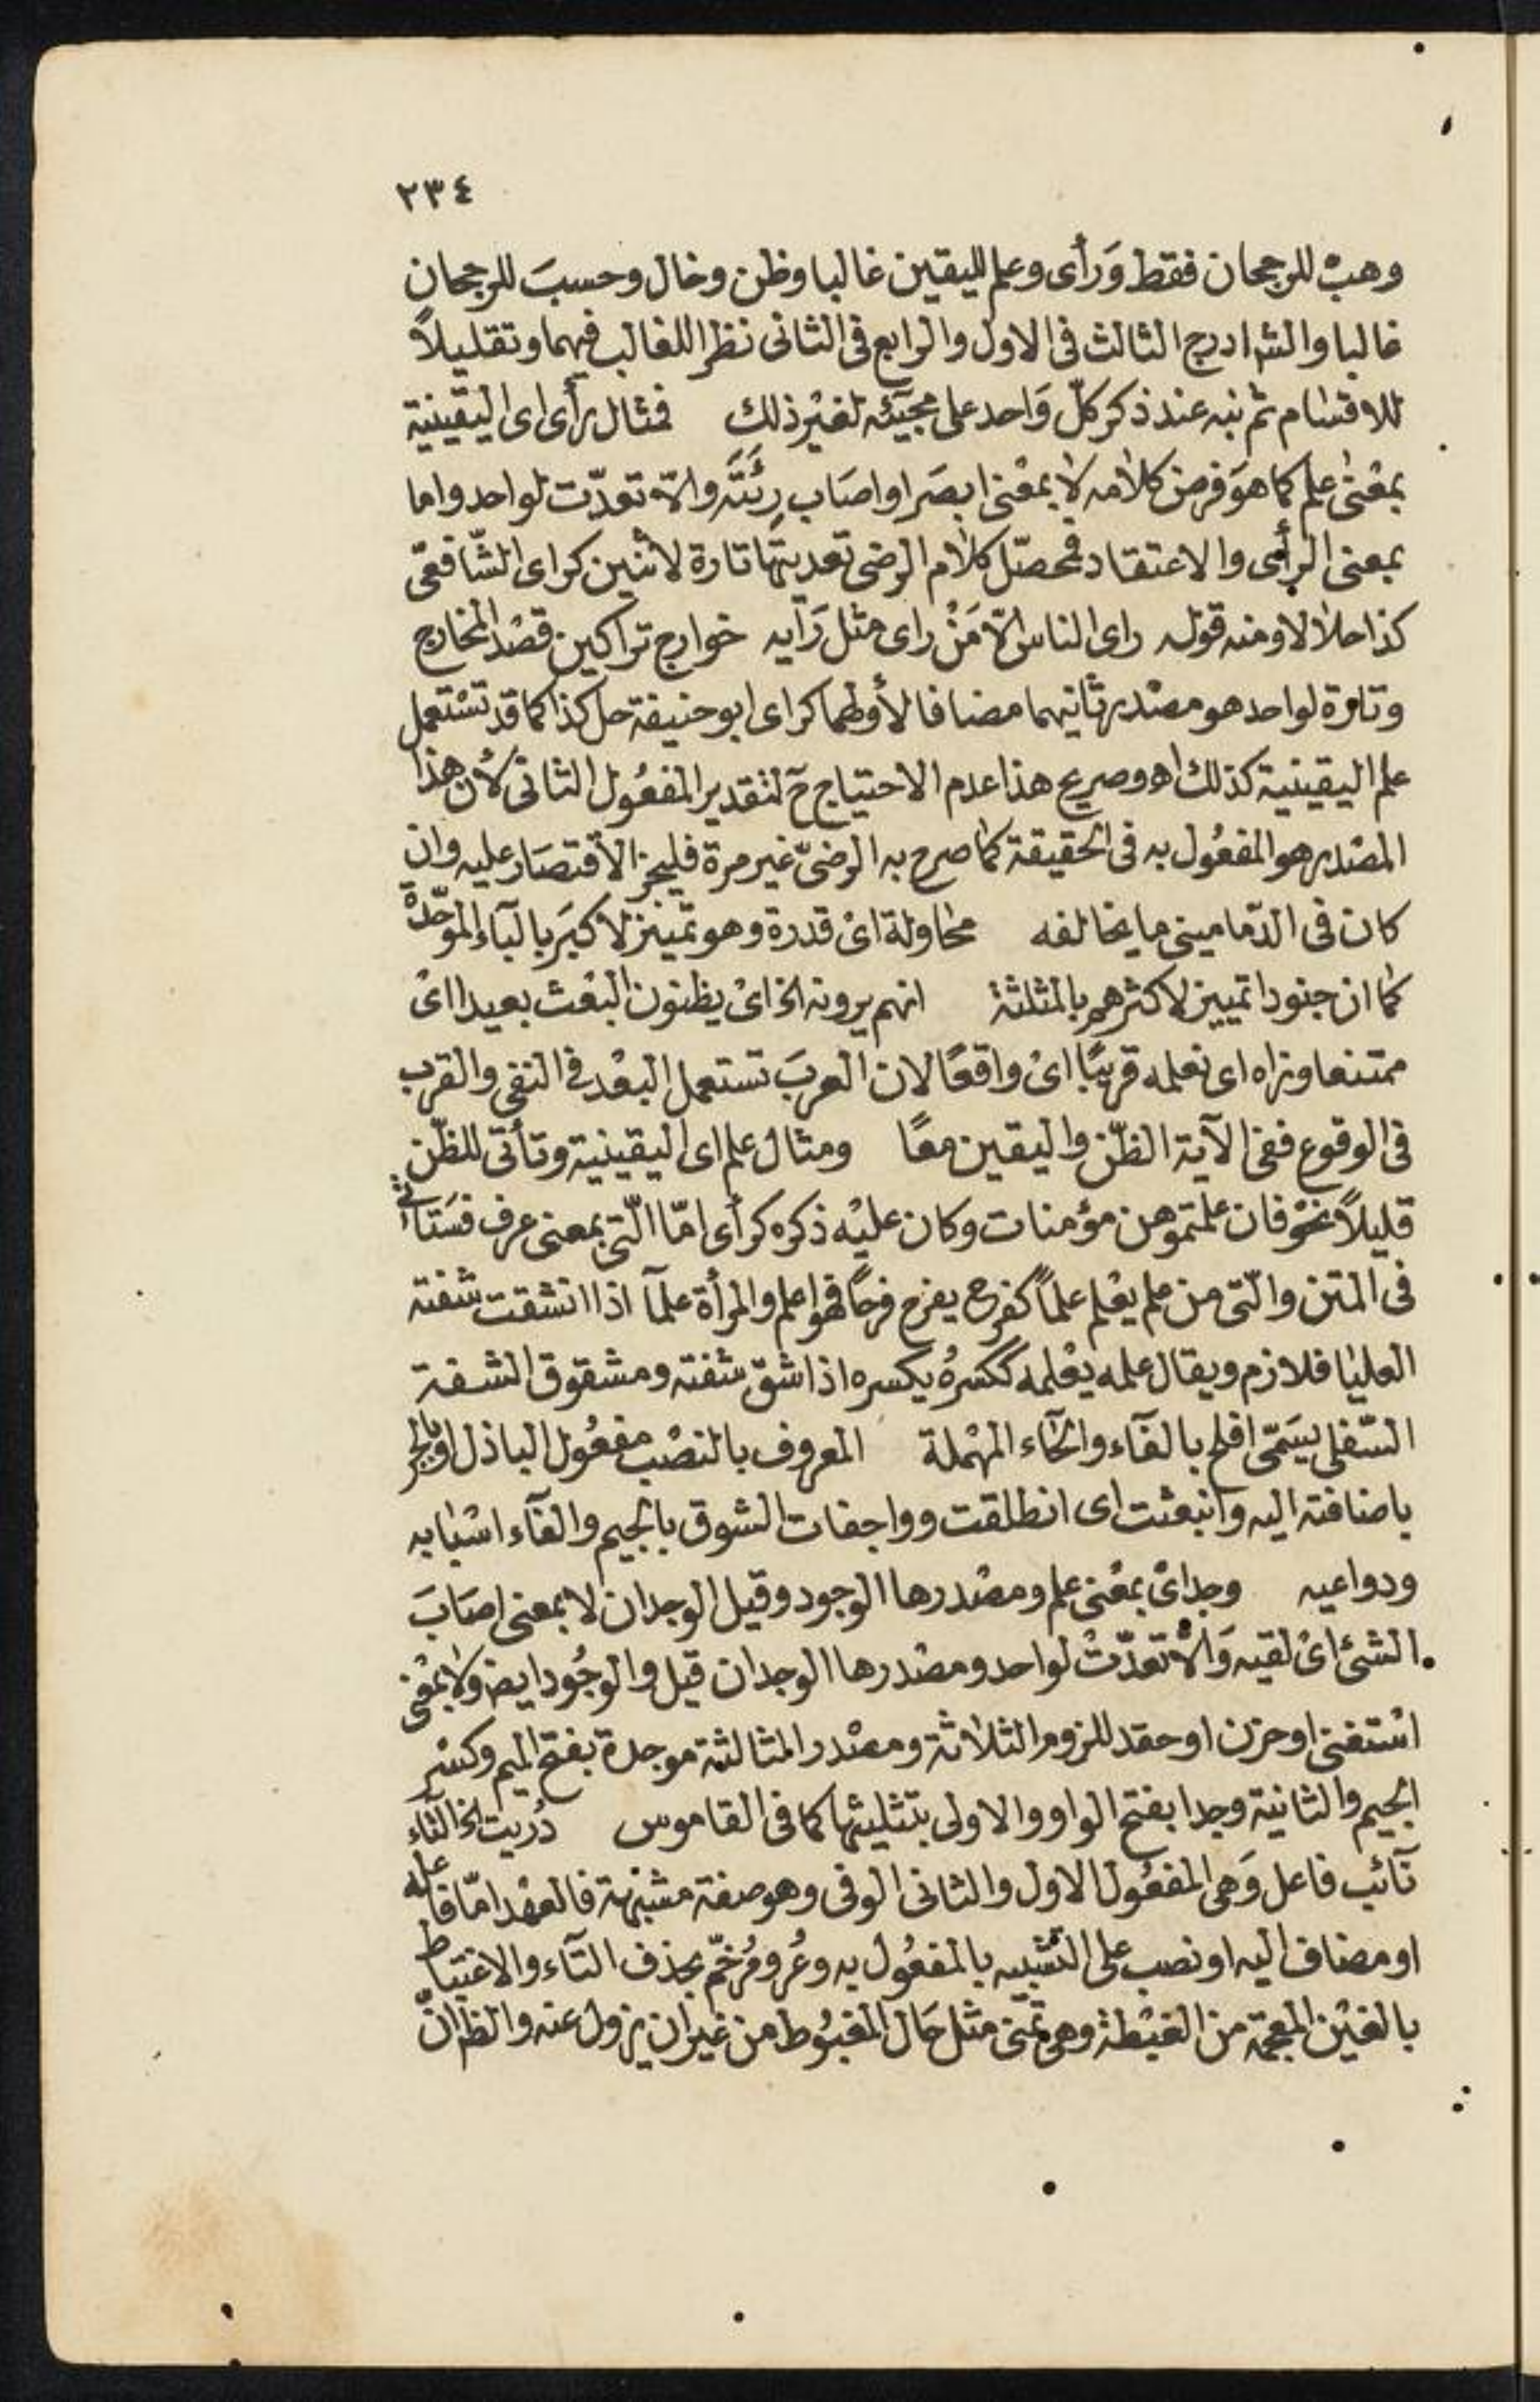 ٢٣٤
وهبْ للرجحان فقط وَرأى وعلم لليقين غالبا وظن وخال وحسبَ للرجحان
غالبا والشر ادرج الثالث فى الاول والرابع فى الثانى نظرا للغالب فيهما وتقليلاً
للاقسام ثم نبه عند ذكر كلّ وَاحد على مجيئه لغيْر ذلك فمثال رأى اى اليقينية
بمعْنى علم كما هوَ فرض كلامه لا بمعْنى ابصَر او اصَاب رِئَتَه والاّ تعدّت لواحد واما
بمعنى الرأى والاعتقاد فمحصّل كلام الرضى تعديتها تارة لاثنين كراى الشّافعى
كذا حلالا ومنه قوله راى الناس الاّ مَنْ راى مثل رَأيه خوارج تراكين قصْد المخارج
وتارة لواحد هو مصْدر ثانيهما مضافا لأولهما كراى ابو حنيفة حل كذا كما قد تسْتعمل
علم اليقينية كذلك اهـ وصريح هذا عدم الاحتياج حَ لتقدير المفعُول الثانى لأن هذا
المصْدر هو المفعُول به فى الحقيقة كما صرح به الرضىّ غير مرة فليجز الاقتصَار عليه وان
كان فى الدّمامينى ما يخالفه محاولة اىْ قدرة وهو تمييز لاكبَر بالبآء الموحّدة
كما ان جنودا تمييز لاكثرهم بالمثلثة انهم يرونه الخ اىْ يظنون البعْث بعيدا اىْ
ممتنعا ونراه اى نعلمه قريبًا اىْ واقعًا لان العربَ تستعمل البعْد فى النفى والقرب
فى الوقوع ففى الآية الظّن واليقين معًا ومثال علم اى اليقينية وتأتى للظّن
قليلاً نحْو فان علمتموهن مؤمنات وكان عليْه ذكره كرأى امّا الّتى بمعنى عرف فسَتأتى
فى المتن والّتى من علم يعْلم علماً كفرح يفرح فرحًا فهو اعلم والمرأة علمآ اذا انشقت شفته
العليا فلازم ويقال علمه يعْلمه ككسرهُ يكسره اذا شق شفته ومشقوق الشفة
السّفلى يسَمّى افلح بالفآء والحآء المهْملة المعروف بالنصْب مفعُول الباذل او بالجر
باضافته اليه وانبعثت اى انطلقت وواجفات الشوق بالجيم والفآء اسْبابه
ودواعيه وجد اىْ بمعْنى علم ومصْدرها الوجود وقيل الوجدان لا بمعنى اصَابَ
الشئ اىْ لقيه وَالاّ تعدّتْ لواحد ومصْدرها الوجدان قيل والوجُود ايضا ولا بمعْنى
اسْتغنى او حزن او حقد للزوم الثلاثة ومصْدر المثالثة موجدة بفتح الميم وكسْر
الجيم والثانية وجدا بفتح الواو والاولى بتثليثها كما فى القاموس دُريت الخ التآء
نآئب فاعل وَهى المفعُول الاول والثانى الوفى وهو صفة مشبّهة فالعهْد امّا فاعله
او مضاف اليه او نصب على التشبيه بالمفعُول به وعُرو مُرخّم بحذف التآء والاغتباط
بالغيْن المعجمة من الغبْطة وهى تمنّى مثل حَال المغبُوط من غير ان يزول عنه والظ انّ